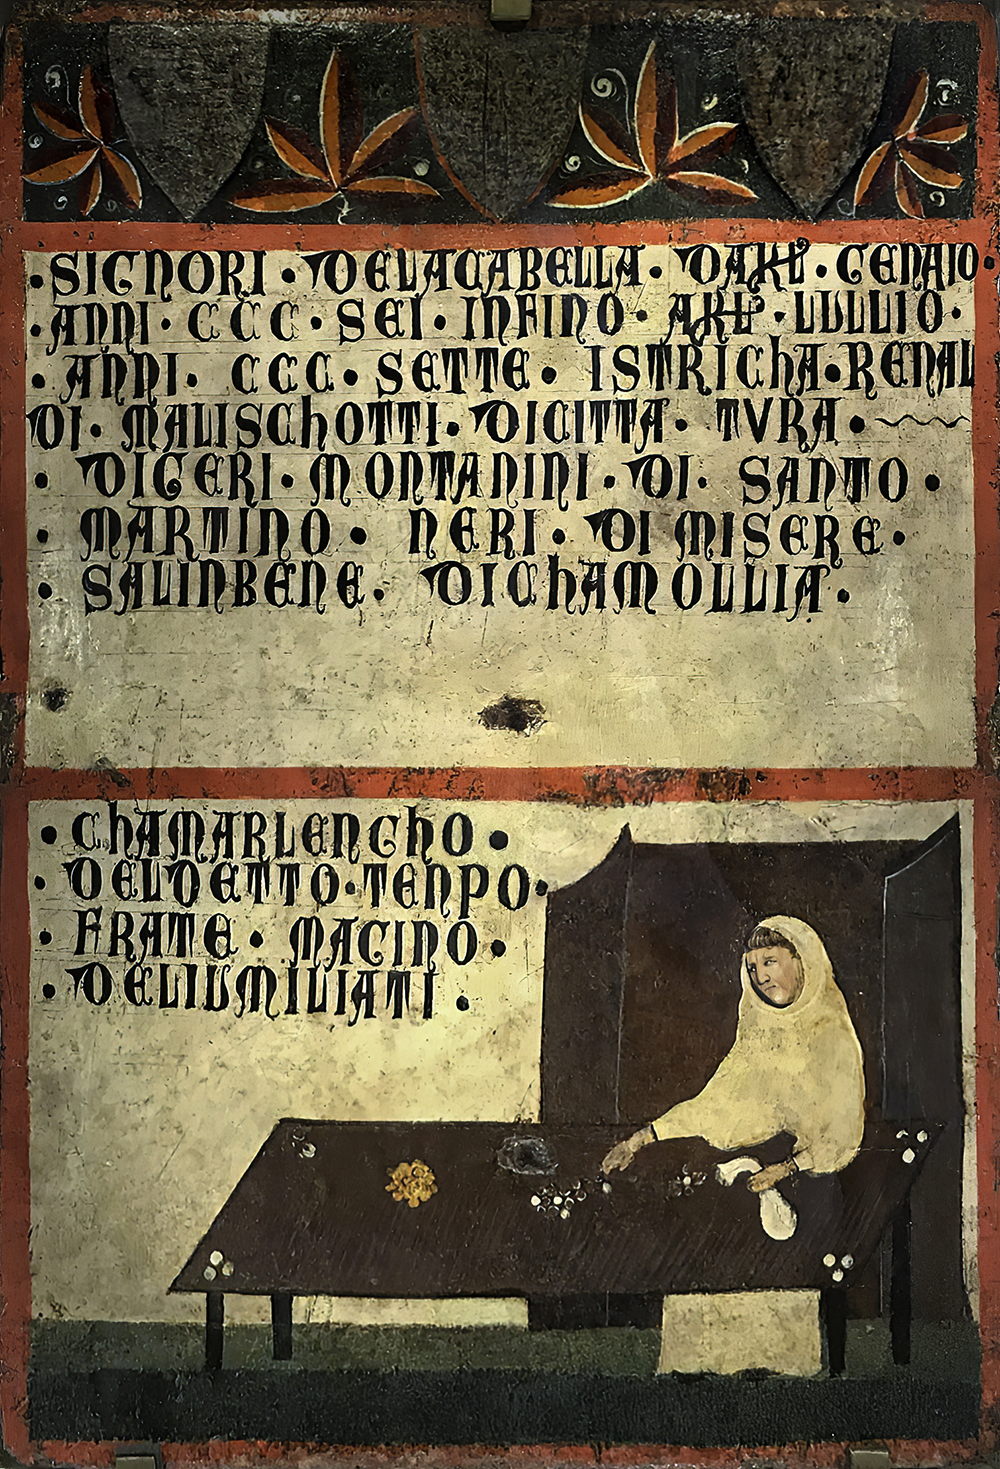 ·SIGNORI · DELAGABELLA · DAKL · GENAIO·
·ANNI · CCC · SEI · INFINO · AKL · LULLIO ·
· ANNI · CCC · SETTE · ISTRICHA·RENAL
DI · MALISCHOTTI · DICITTA · TVRA ·
· DIGERI · MONTANINI · DI · SANTO ·
· MARTINO · NERI · DI MISERE ·
· SALINBENE · DICHAMOLLIA ·
· CHAMARLENGHO ·
· DELDETTO·TENPO·
· FRATE · MAGINO ·
· DELIUMILIATI ·